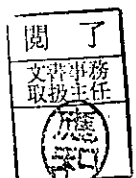 閲了
文書事務
取扱主任